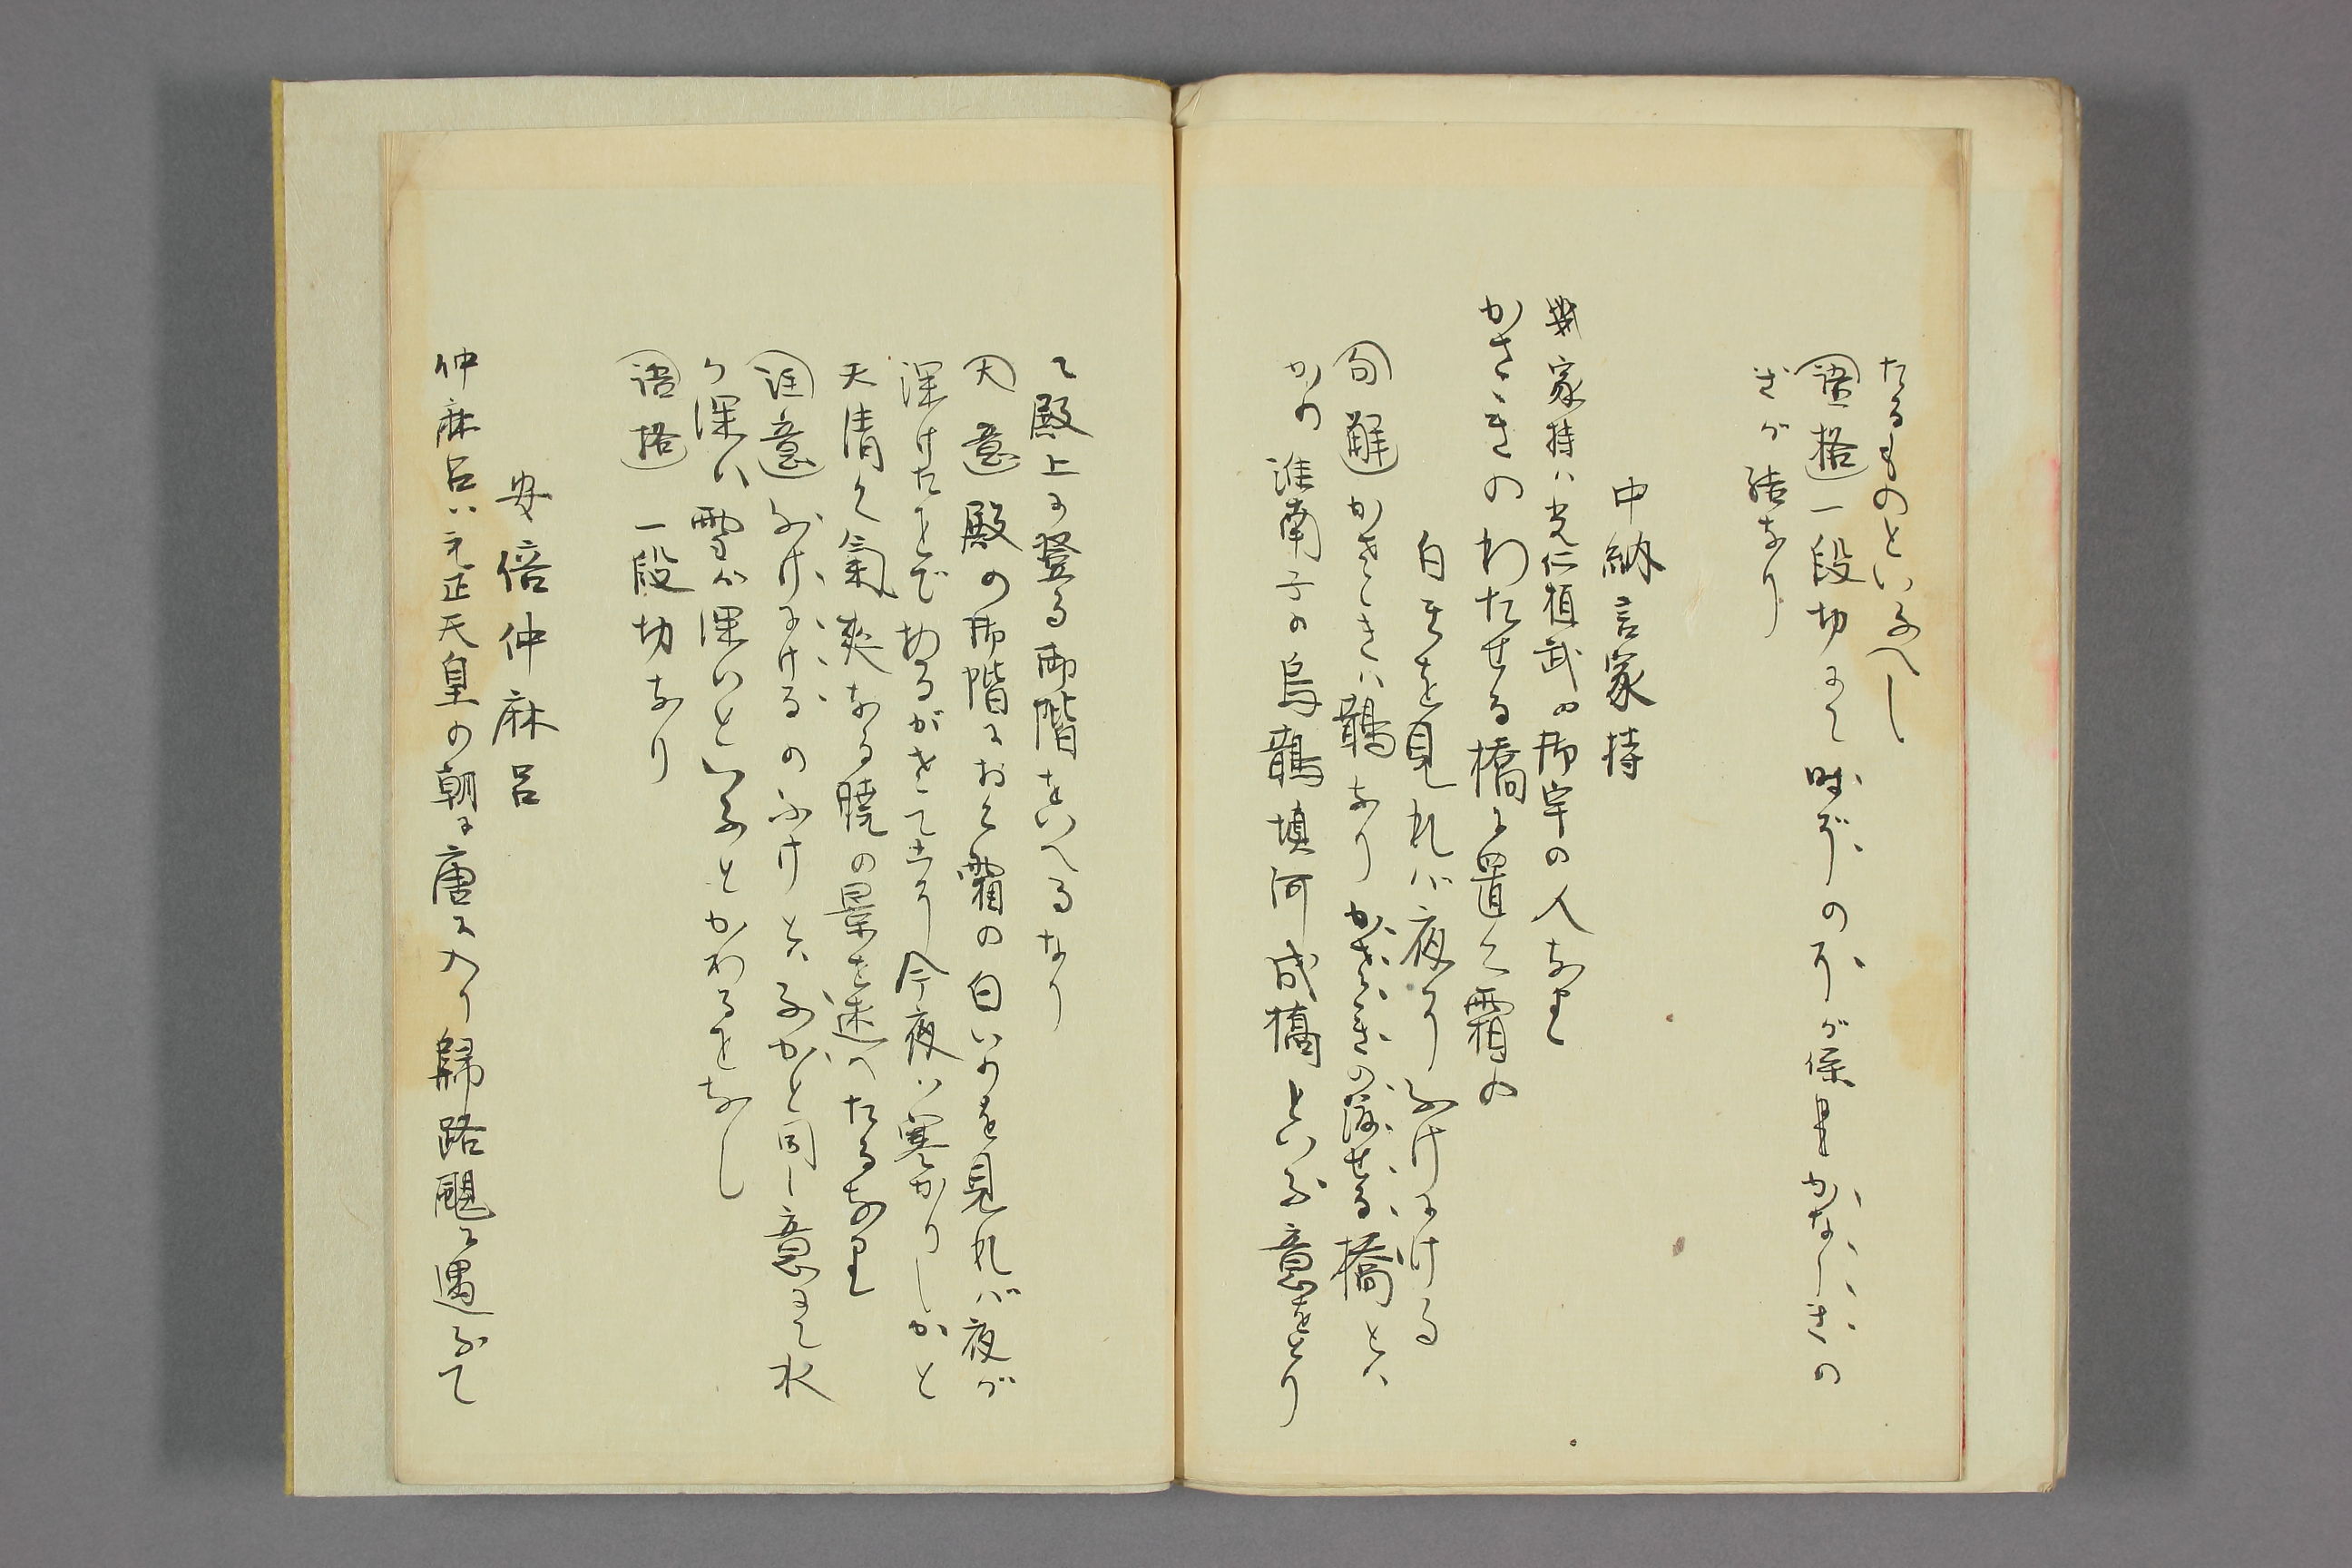 たるものといふべし
語格 一段切にて 時ぞ の ぞ が係 かなしきの
きが結なり
中納言家持
家持ハ光仁桓武の御宇の人なり
かさゝきのわたせる橋に置く霜の
白きを見れバ夜ぞふけにける
句解 かさゝきハ鵲なり かさゝきの渡せる橋とハ
かの淮南子の烏鵲填河成橋といふ意をとり
て殿上に登る御階をいへるなり
大意 殿の御階におく霜の白いのを見れバ夜が
深けたことで あるがさて こそ 今夜ハ寒かりしかと
天清く氣爽なる曉の景を述べたるなり
註意 ふけにけるのふけとハふかと同し意にて水
が深い雪が深いといふとかわることなし
語格 一段切なり
安倍仲麻呂
仲麻呂ハ元正天皇の朝に唐に入り歸路颶に遇ふて